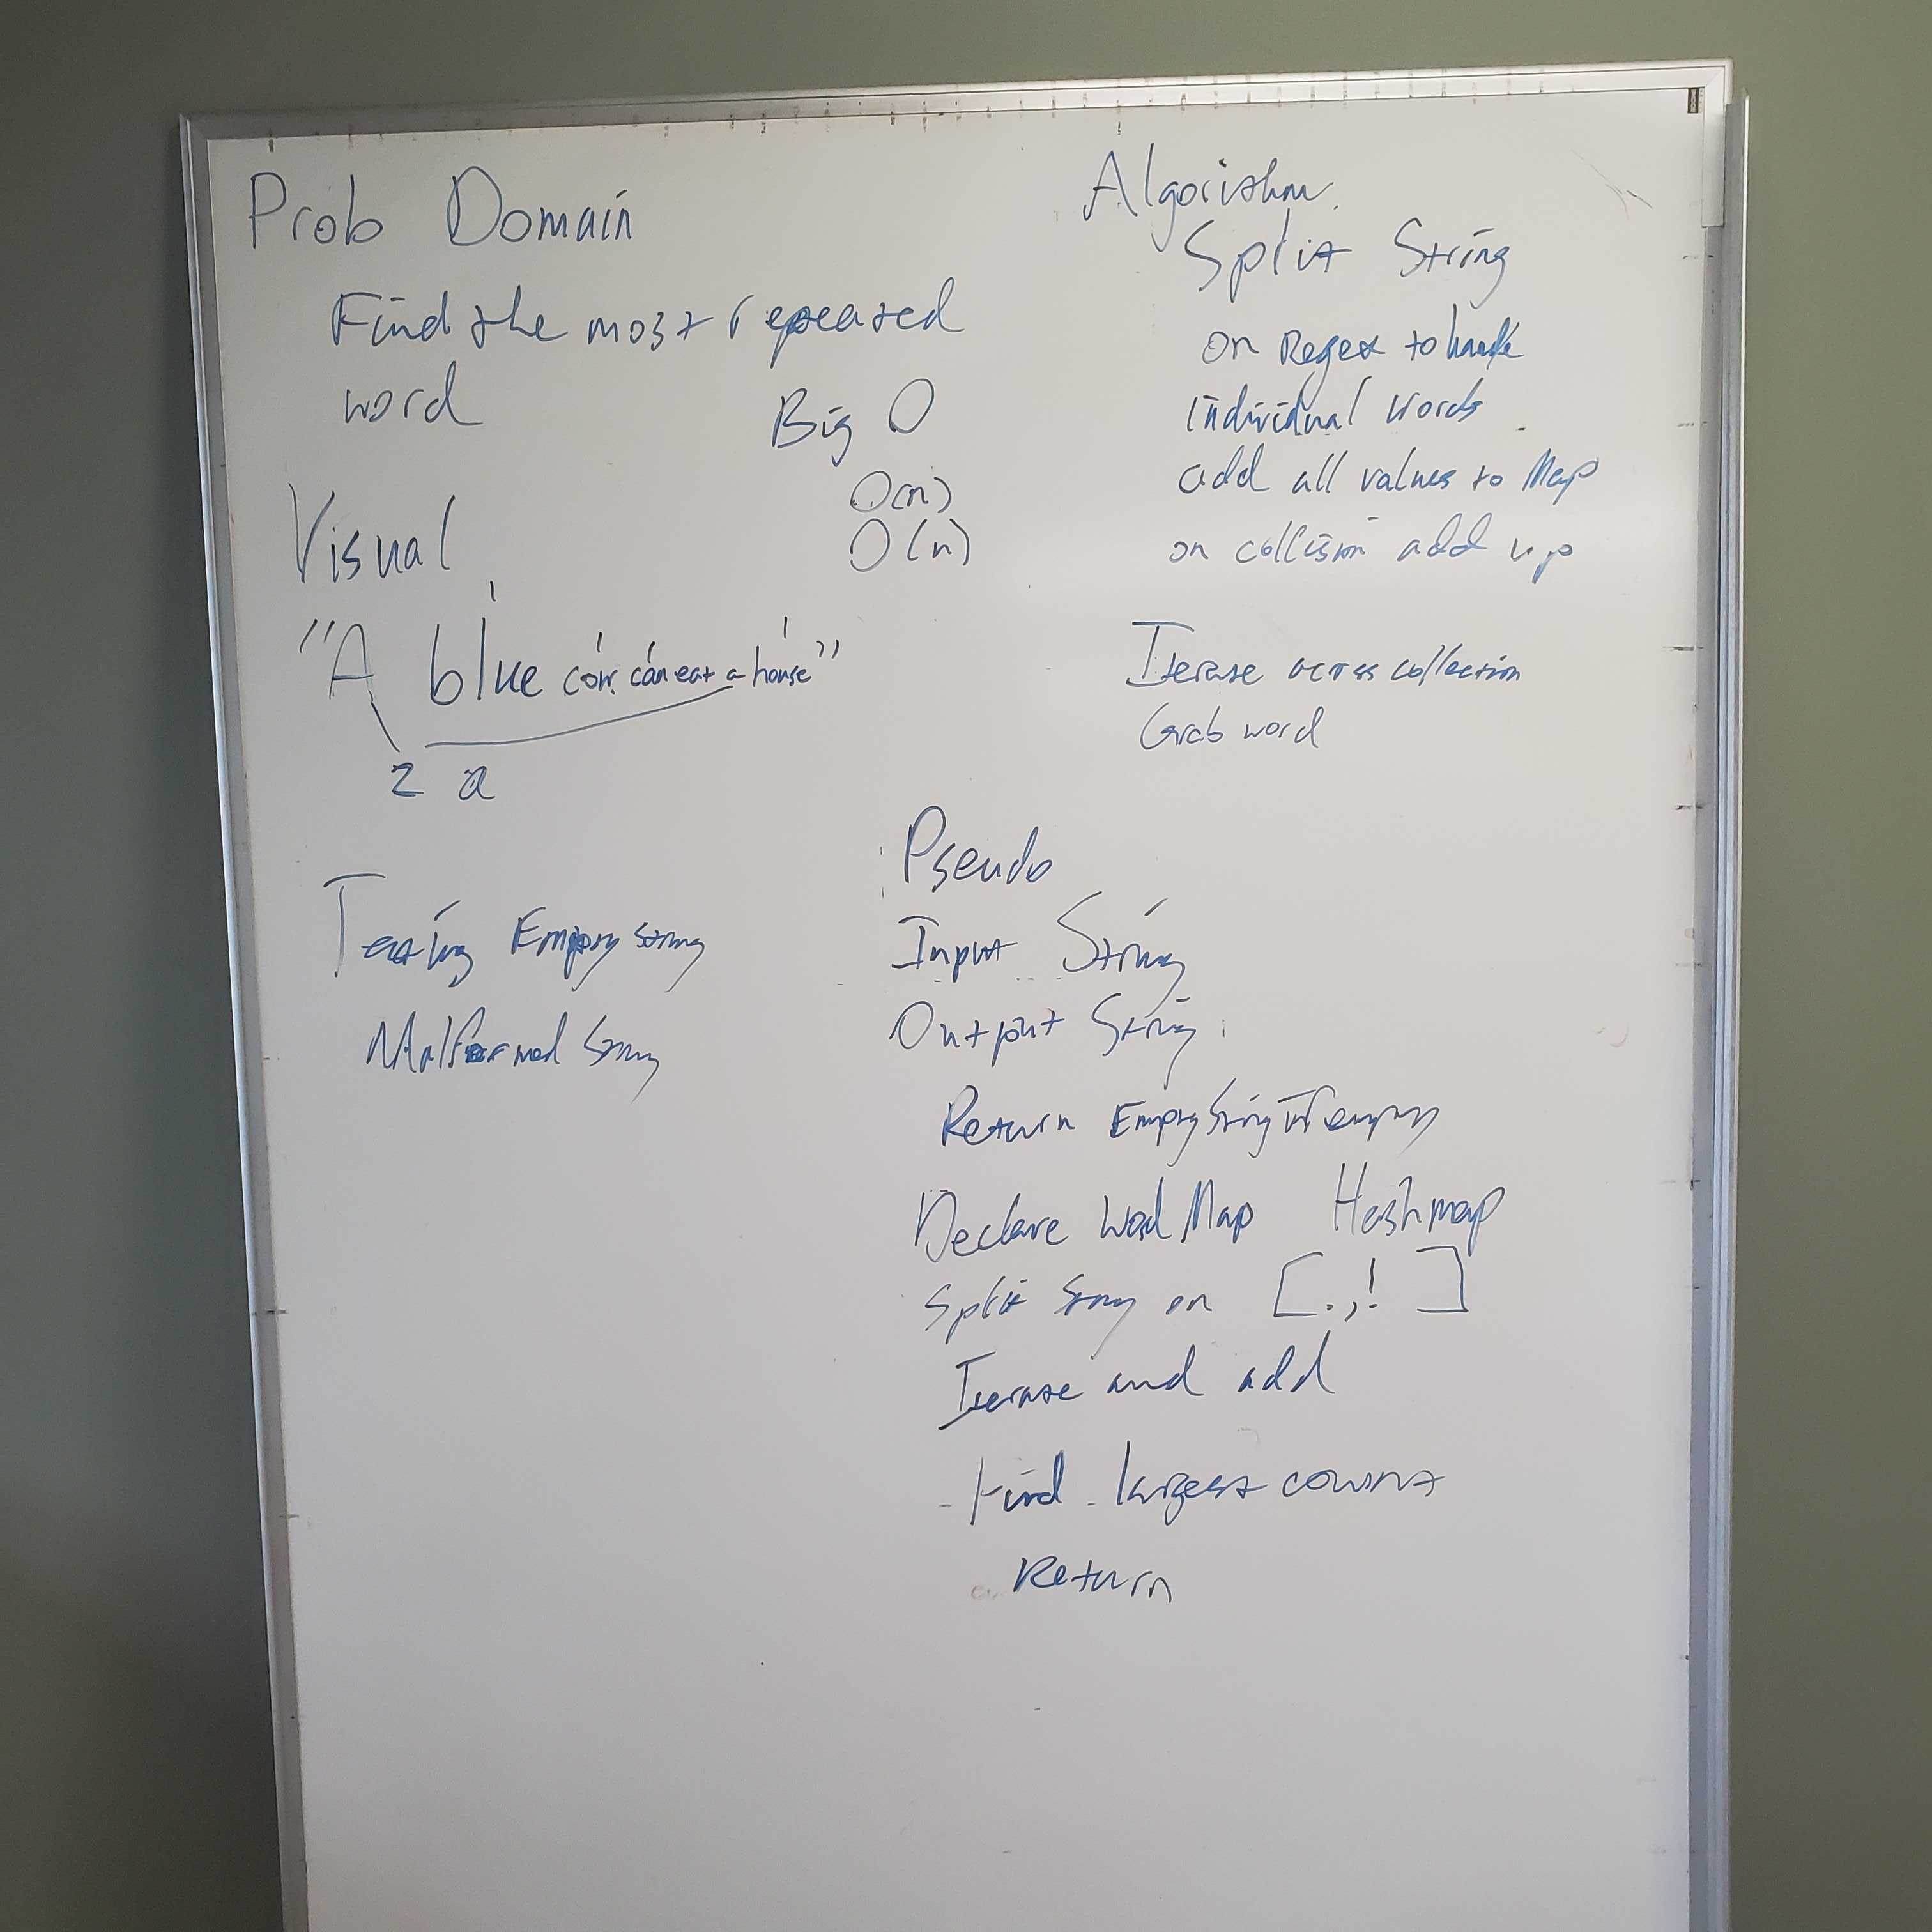 Prob Domain
Find the most repeated
word
Big O
O(n)
O(n)
Visual
"A blue cow can eat a house"
2 a
Testing Empty String
Malformed String
Algorithm
Split String
on Regex to handle
individual words
add all values to Map
on collision add up
Iterate across collection
Grab word
Pseudo
Input String
Output String
Return Empty String if empty
Declare Word Map Hashmap
Split String on [.,! ]
Iterate and add
Find largest count
Return